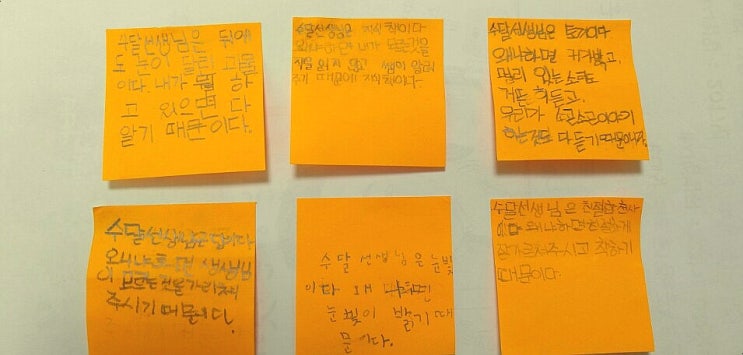 수달선생님은 뒤에
도 눈이 달린 괴물
이다. 내가 뭘 하
고 있으면 다
알기 때문이다.
수달선생님은 지식책이다
왜냐하면 내가 모르는것을
책을 읽지 않고 쌤이 알려
주기 때문에 지식책이다.
수달선생님은 토끼이다
왜냐하면 귀가밝고.
멀리 있는소리도
거든 히들고.
우리가 소곤소곤이야기
하는것도 다 듣기때문이다.
수달선생님은 답이다
왜냐하면 생생님
이 모르는것을가리쳐
주시기 때문이다.
수달 선생님은눈빛
이다 왜 냐하면
눈빛이 밝기때
문이다.
수달선생님은친절한천사
이다 왜냐하면친절하게
잘가르쳐주시고 착하기
때문이다.